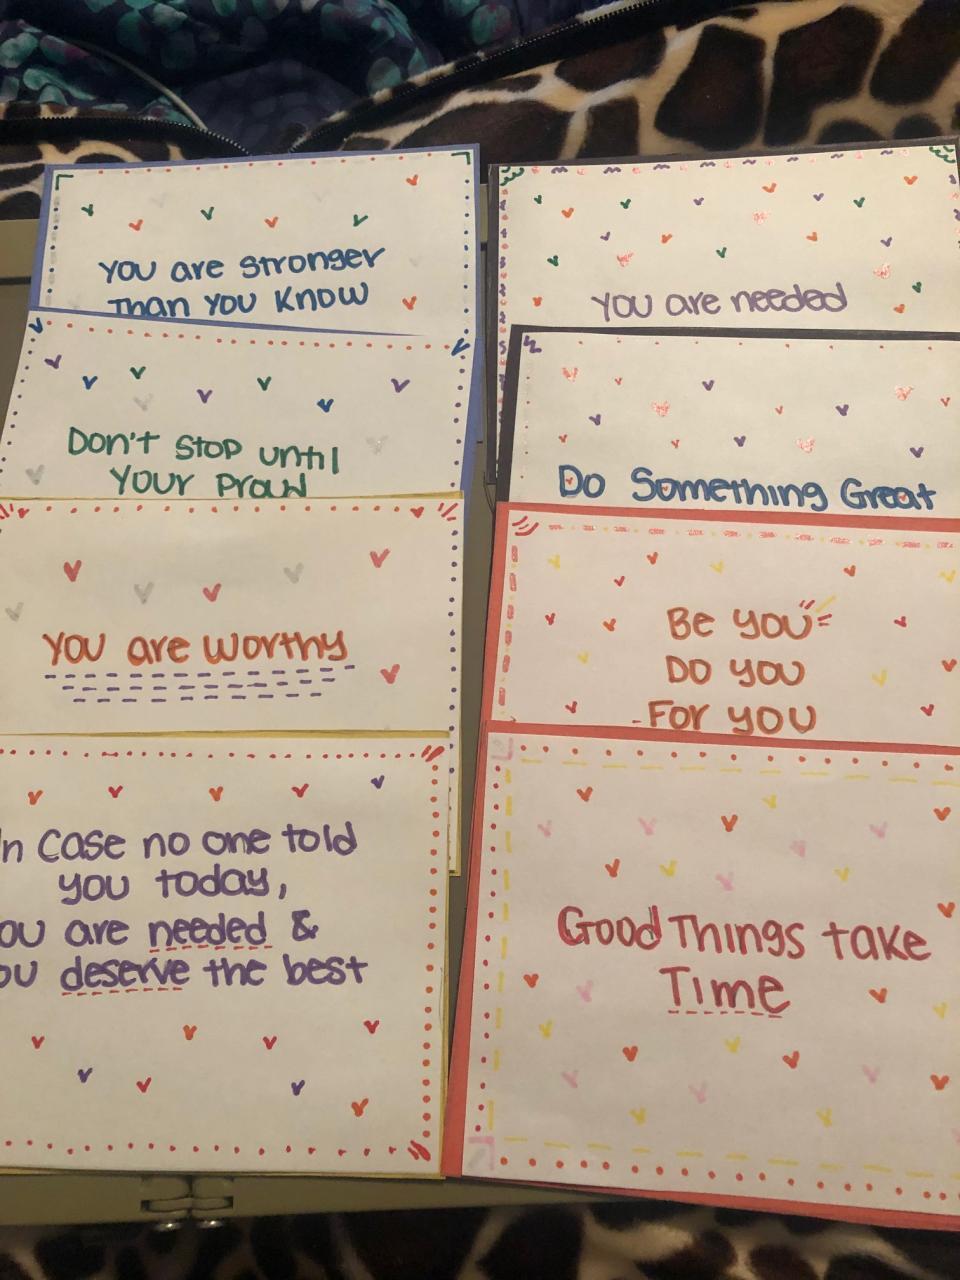 You are stronger
Than you know
Don't stop until
your proud
You are worthy
In case no one told
you today,
you are needed &
you deserve the best
You are needed
Do Something Great
Be you
Do you
For you
Good Things take
Time